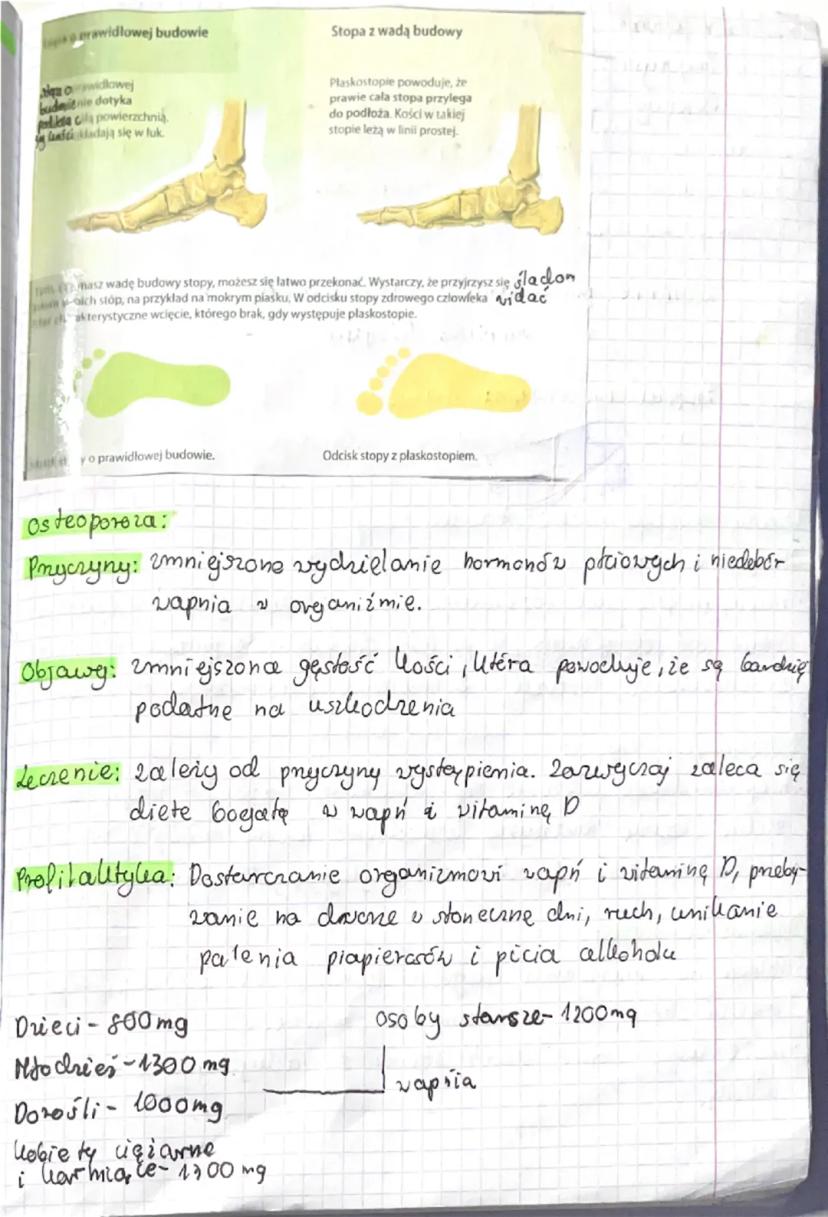 prawidłowej budowie
Stopa z wadą budowy
prawidłowej
budowie nie dotyka
podłoża całą powierzchnią,
jej kości układają się w łuk.
Płaskostopie powoduje, że
prawie cała stopa przylega
do podłoża. Kości w takiej
stopie leżą w linii prostej.
masz wadę budowy stopy, możesz się łatwo przekonać. Wystarczy, że przyjrzysz się śladom
stóp, na przykład na mokrym piasku. W odcisku stopy zdrowego człowieka widać
charakterystyczne wcięcie, którego brak, gdy występuje płaskostopie.
o prawidłowej budowie.
Odcisk stopy z płaskostopiem.
Osteoporoza:
Przyczyny: zmniejszone wydzielanie hormonów płciowych i niedobór
wapnia w organiźmie.
Objawy: zmniejszona gęstość kości, która powoduje, że są bardziej
podatne na uszkodzenia
Leczenie: zależy od przyczyny wystąpienia. Zazwyczaj zaleca się
dietę bogatą w wapń i vitaminę D
Profilaktyka: Dostarczanie organizmowi wapń i vitaminę D, przeby-
wanie na dworze w słoneczne dni, ruch, unikanie
palenia piapierosów i picia alkoholu
Dzieci - 800 mg
osoby starsze - 1200mg
Młodzież - 1300 mg
wapnia
Dorośli - 1000mg
Kobiety ciężarne
i karmiące - 1300 mg